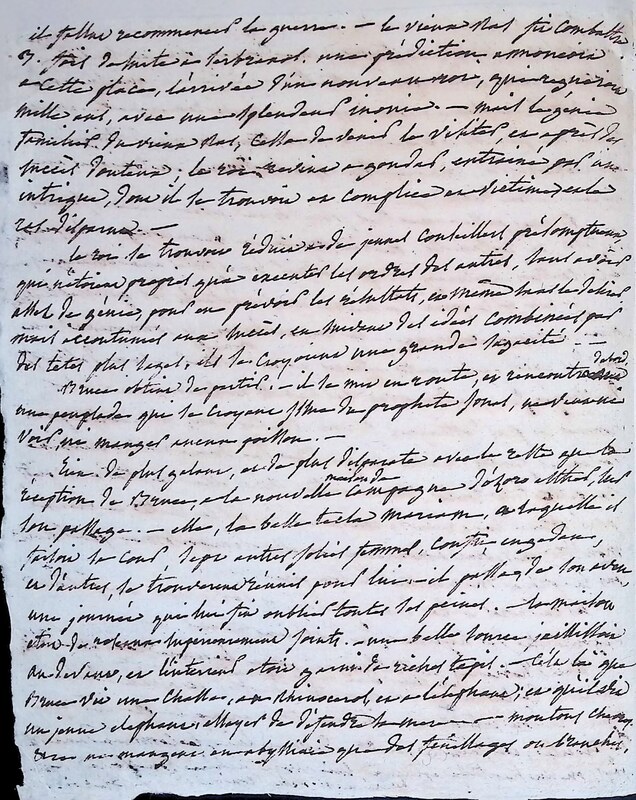 il fallut recommencer la guerre. — le vieux Ras fut combattu
3. fois de suite à Serbraxos. une prédiction annonçoit
à cette place, l'arrivée d'un nouveau roi, qui regneroit
mille ans, avec une splendeur inouie. — mais le génie
familier du vieux Ras, cessa de venir le visiter et après des
succès douteux ; le roi revint à gondar, entrainé par une
intrigue, dont il se trouvoit et complice et victime, et le
ras disparut. —
le roi se trouvoit réduit à de jeunes conseillers présomptueux,
qui n'étoient propres qu'à executer les ordres des autres, sans avoir
assez de génie, pour en prévoir les résultats, et même
mais accoutumés aux succès, en suivant des idées combinées par
des têtes plus sages, ils se croyoient une grande sagacité. —
Bruce obtint de partir. — il se mit en route, et rencontra d'abord
une peuplade que se croyant issue du prophete Jonas, ne
voir, ni manger aucun poisson. —
Rien de plus galant, et de plus disparate avec le reste que la
réception de Bruce, à la nouvelle maison de campagne d'ozoro esther, sur
son passage. — elle, la belle tecla mariam, à laquelle il
faisoit sa cour, sept autres jolies femmes, confu, engedan,
et d'autres se trouverent reunis pour lui. — il passa, de son aveu
une journée qui lui fit oublier toutes ses peines. — la maison
étoit de roseaux superieurement joints. — une belle source jaillissoit
au devant, et l'interieur étoit garni de riches tapis. — C'est là que
Bruce vit une chasse, au rhinoceros, et à l'éléphant ; et qu'il vit
un jeune elephant essayer de défendre sa mere — moutons
ne mangent en abyssinie que des feuillages ou branches,